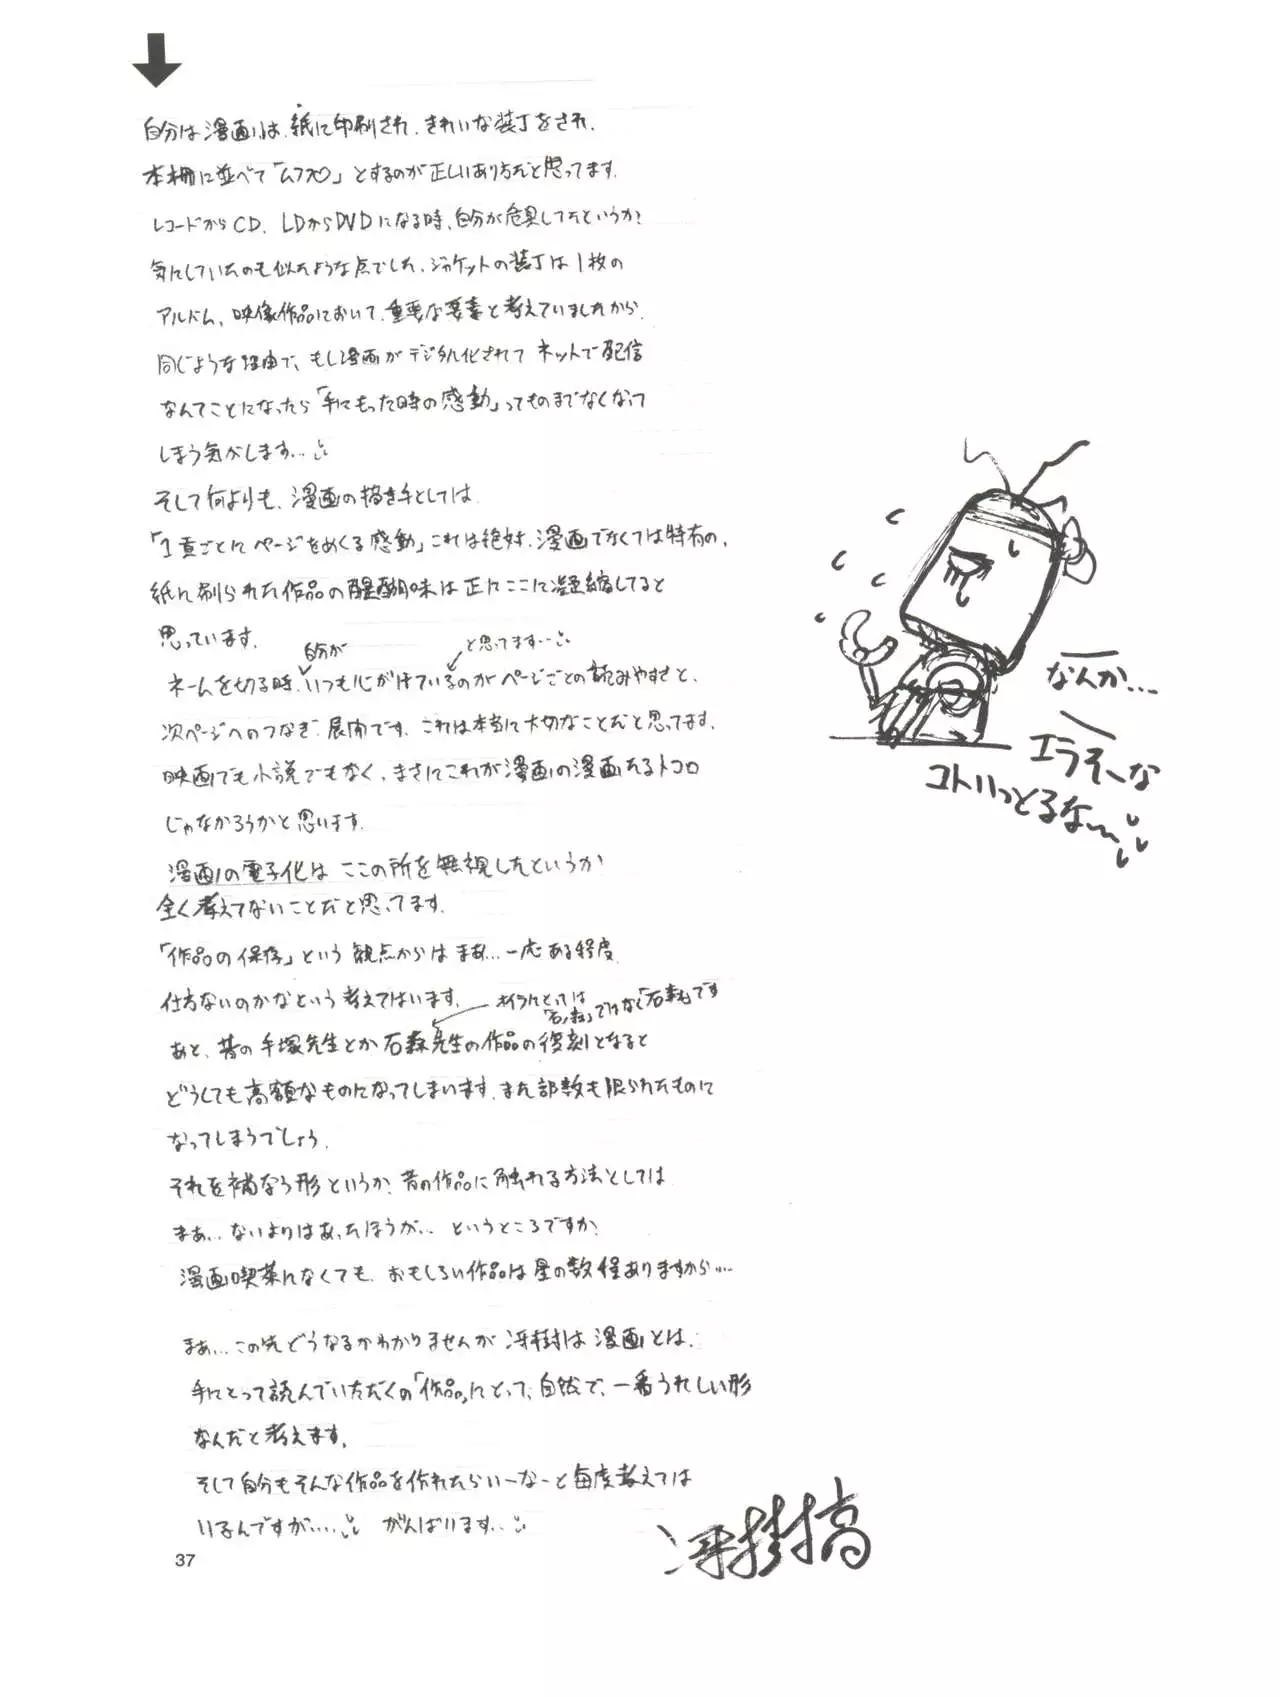 自分は漫画は、紙に印刷され、きれいな装丁をされ、
本棚に並べて「ムフ♡」とするのが正しいあり方だと思ってます。
レコードからCD、LDからDVDになる時、自分が危具してたというか?
気にしていたのも似たような点でした。ジャケットの装丁は1枚の
アルバム、映像作品において、重要な要素と考えていましたから。
同じような理由で、もし漫画がデジタル化されて ネットで配信
なんてことになったら「手にもった時の感動」ってものまでなくなって
しまう気がします…
そして何よりも、漫画の描き手としては
「1頁ごとにページをめくる感動」これは絶対、漫画でなくては特有の、
紙に刷られた作品の醍醐味は正にここに凝縮してると
思っています。
自分が
と思ってます…
ネームを切る時、いつも心がけているのがページごとの読みやすさと、
次ページへのつなぎ・展開です。これは本当に大切なことだと思ってます。
映画でも小説でもなく、まさにこれが漫画の漫画たるトコロ
じゃなかろうかと思います。
漫画の電子化は ここの所を無視したというか
全く考えてないことだと思ってます。
「作品の保存」という観点からは まあ…一応ある程度
仕方ないのかなという考えではいます。
オイラにとっては
「石ノ森」ではなく「石森」です
あと、昔の手塚先生とか石森先生の作品の復刻となると
どうしても高額なものになってしまいます。また部数も限られたものに
なってしまうでしょう。
それを補なう形というか、昔の作品に触れる方法としては
まあ…ないよりはあったほうが… というところですか?
漫画喫茶になくても、おもしろい作品は星の数程ありますから…
まあ…この先どうなるかわかりませんが 冴樹は漫画とは、
手にとって読んでいただくの「作品」にとって、自然で、一番うれしい形
なんだと考えます。
そして自分もそんな作品を作れたらいーなーと毎度考えては
いるんですが…… がんばります…
冴樹高
なんか…
エラそーな
コトいっとるな〜
37